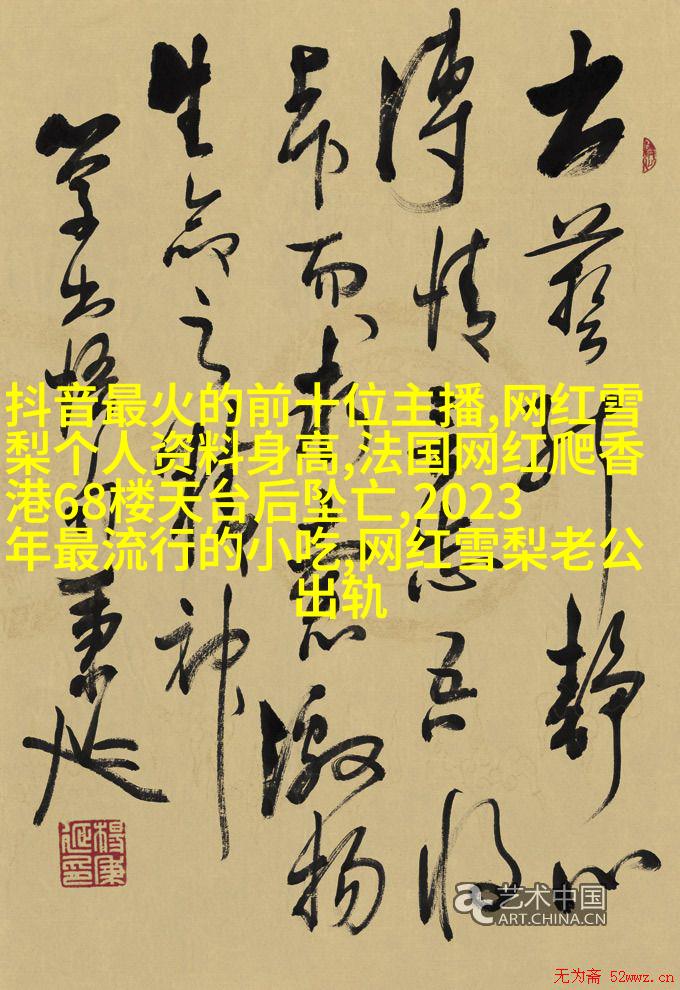 抖音最火的前十位主播,网红雪
梨个人资料身高,法国网红爬香
港68楼天台后坠亡,2023
年最流行的小吃,网红雪梨老公
出轨
静心
情 吾
而 激扬
生命之精神
秉延
艺术中国
ART.CHINA.CN
无为斋 52wwz.cn